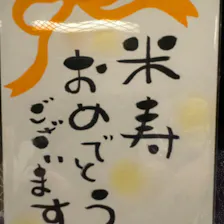 米寿
おめでとう
ございます